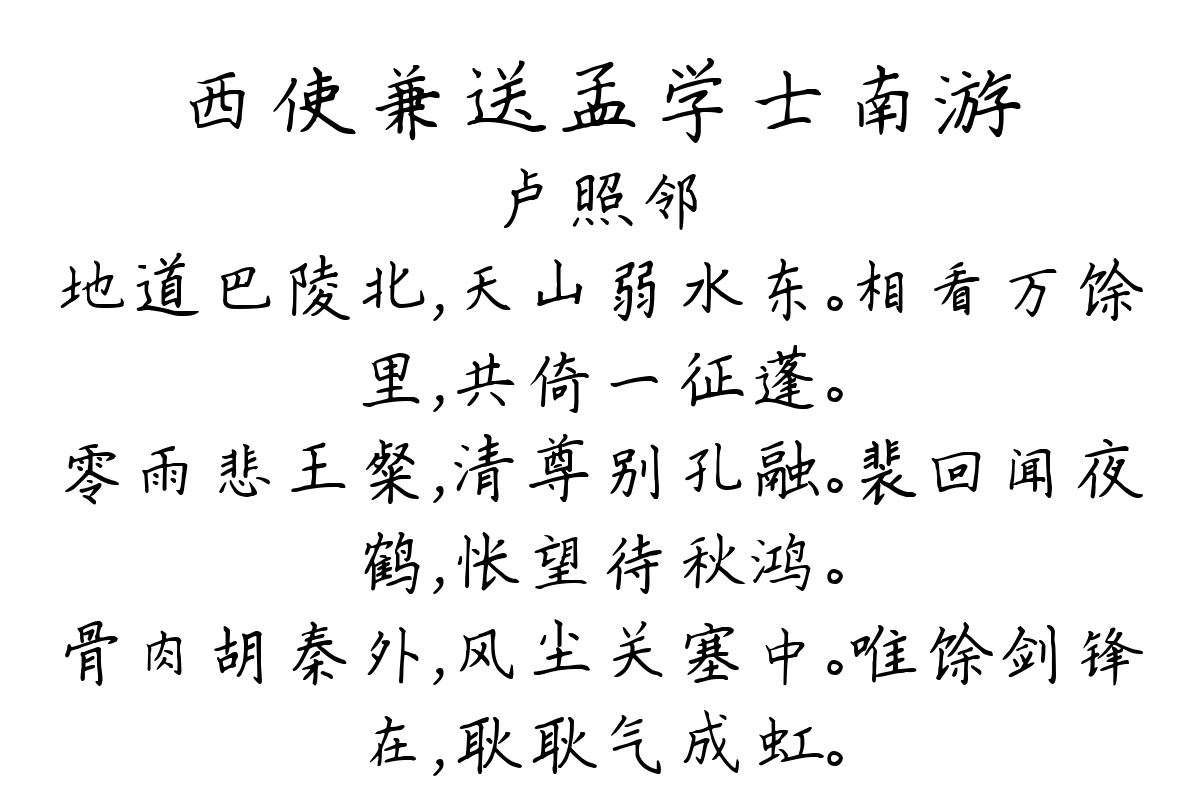 西使兼送孟学士南游
卢照邻
地道巴陵北,天山弱水东。相看万馀
里,共倚一征蓬。
零雨悲王粲,清尊别孔融。裴回闻夜
鹤,怅望待秋鸿。
骨肉胡秦外,风尘关塞中。唯馀剑锋
在,耿耿气成虹。